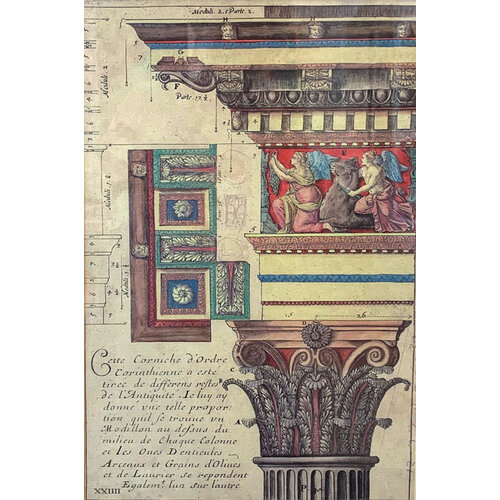 Moduli 2. e Parte 2.
Moduli. 2
G
F
Parte. 17. ½
E
Moduli. 1. ½
26
D
C
B
A
Cette Corniche d'Ordre
Corinthienne a este
tirée de differens restes
de l'Antiquité. Je luy ay
donne vne telle propor-
tion quil se trouue vn
Modillon au desus du
milieu de Chaque Colonne
et les Oues Denticules
Arceaux et Grains d'Oliues
et de Laurier se repondent
Egalemt. lun sur l'autre
XXIIII
P